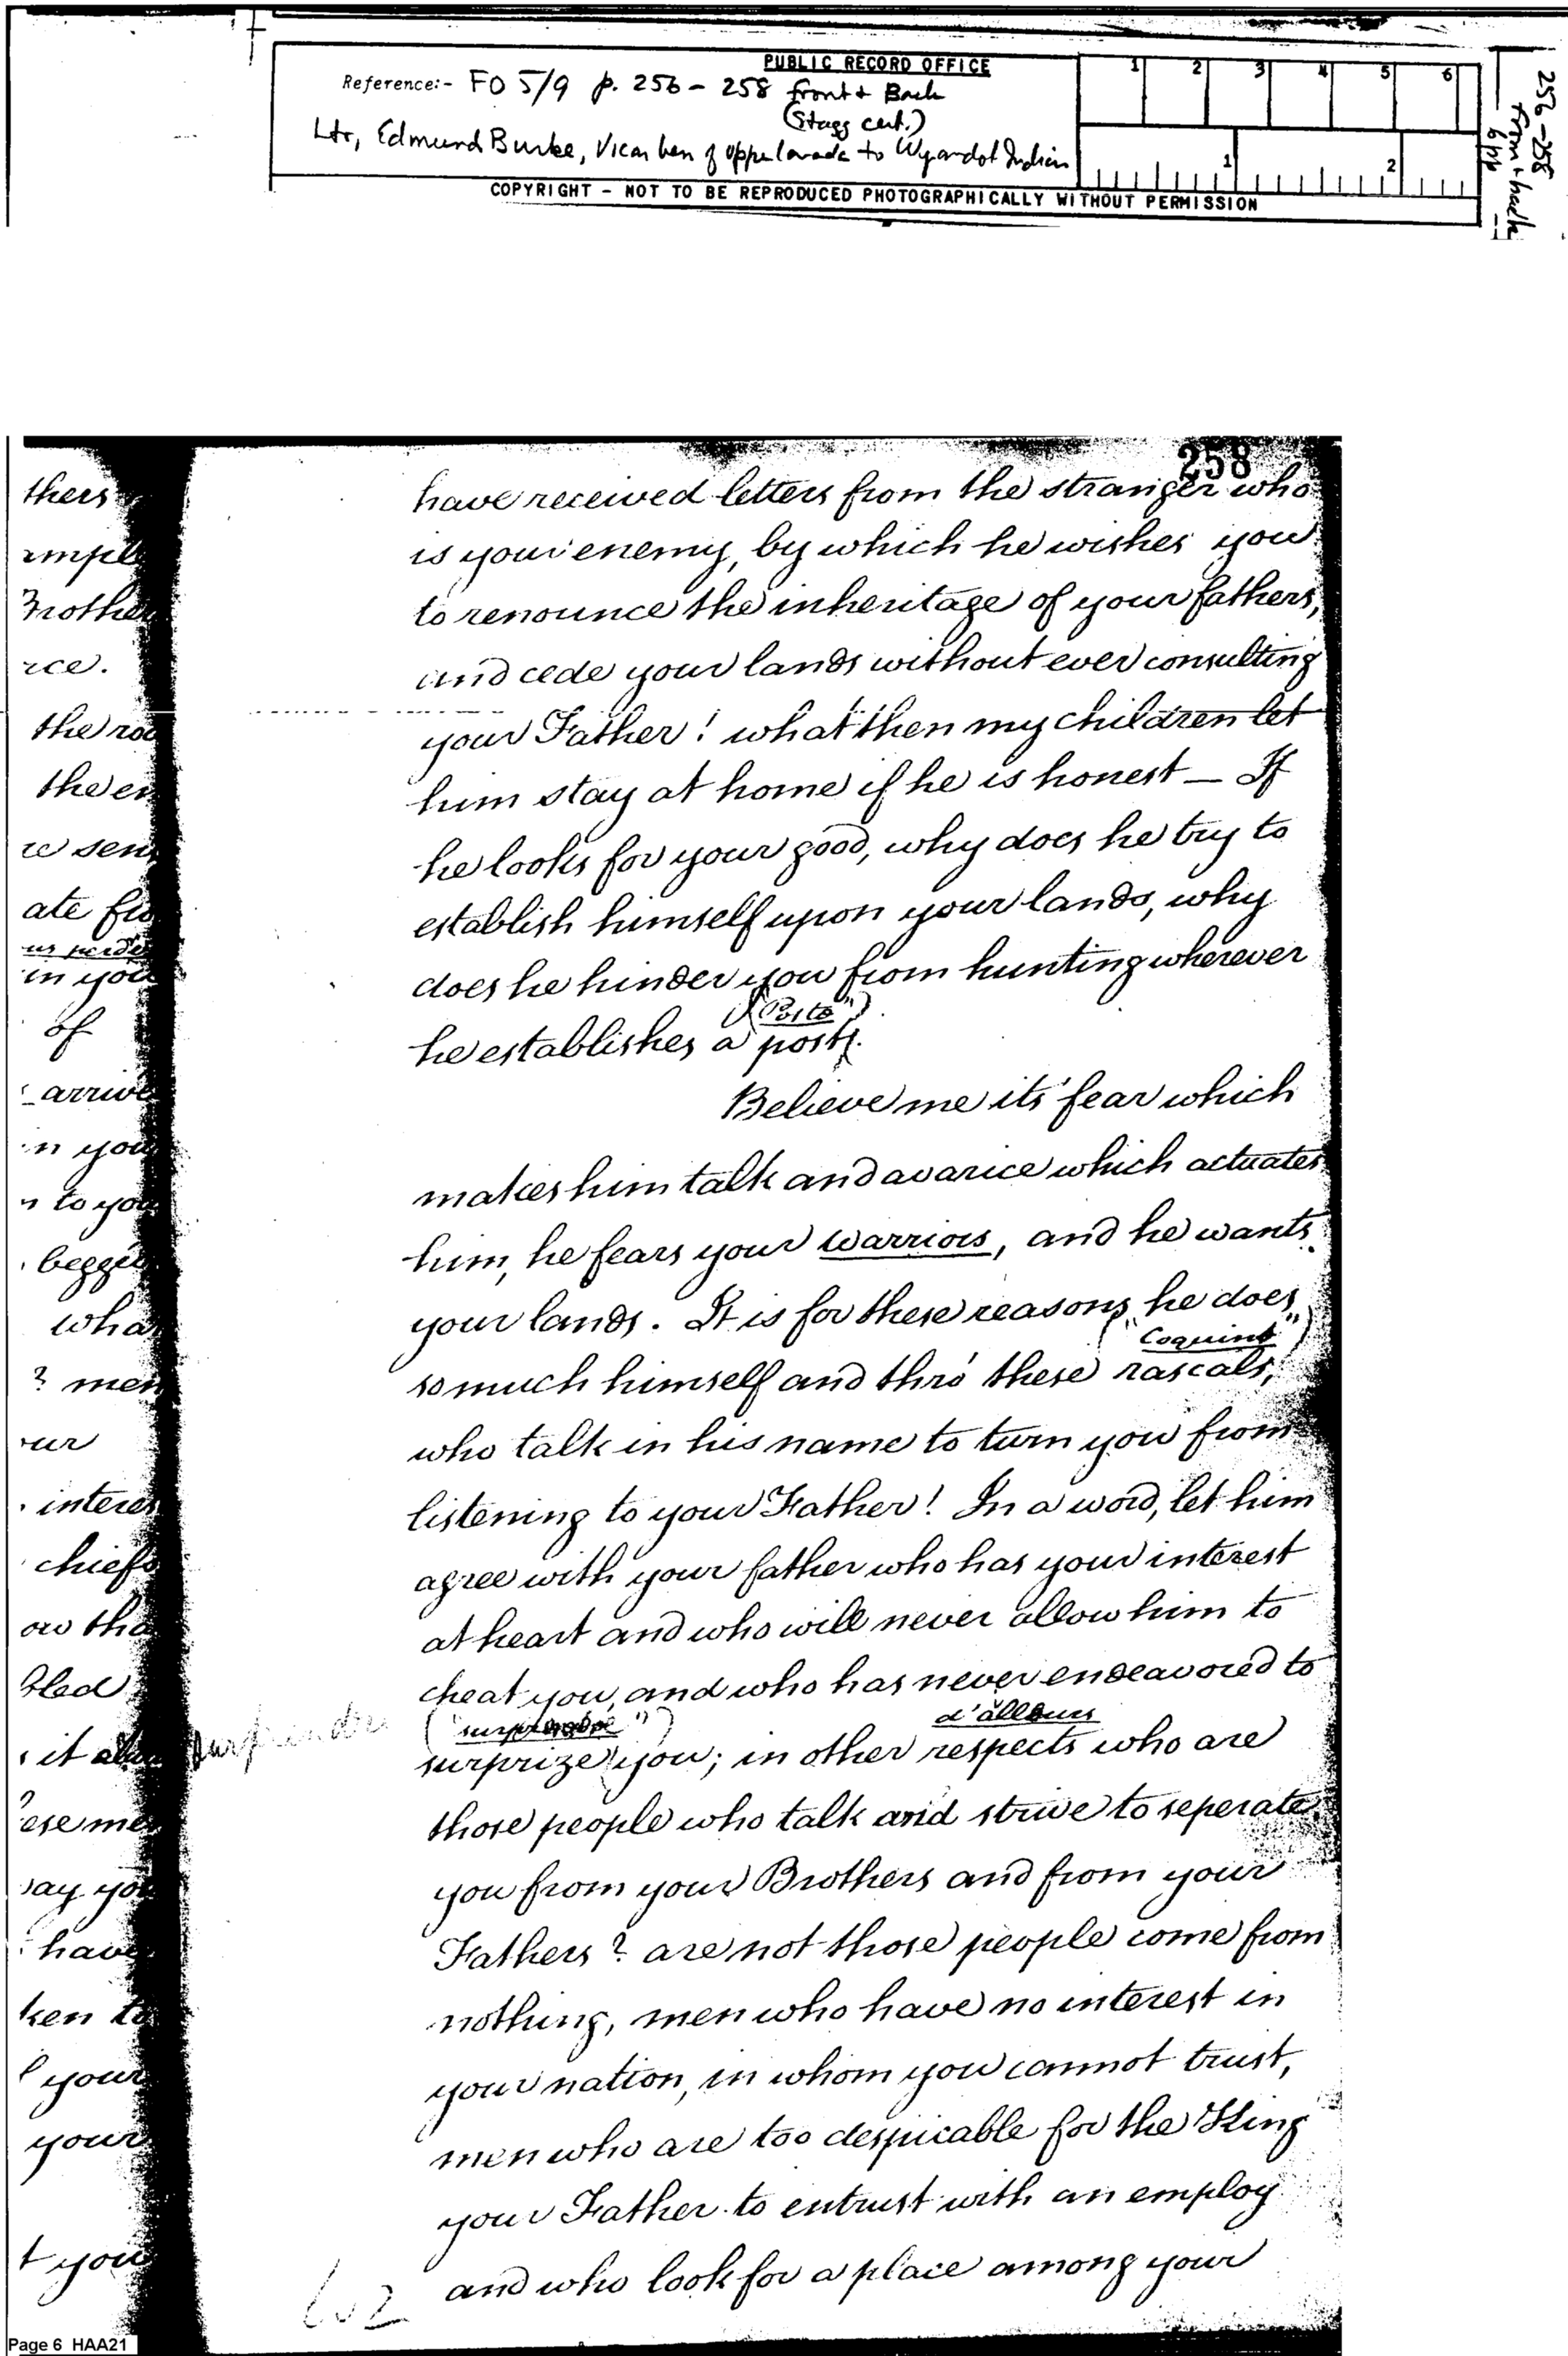 PUBLIC RECORD OFFICE
Reference:- FO 5/9 p. 256 - 258 front + Back
(Stagg cert.)
Ltr, Edmund Burke, Vicar Gen of Upper Canada to Wyandot Indian
COPYRIGHT - NOT TO BE REPRODUCED PHOTOGRAPHICALLY WITHOUT PERMISSION
1 2 3 4 5 6
1 2
256-258
front + back
6 pp
258
thers
imple
Brothe
rce.
the roa
the en
re sen
ate fro
us perde
in you
of
arrive
n you
n to you
beggi
wha
? men
ur
interes
chiefs
ow tha
bled
it als
ese me
say you
have
ken to
your
your
t you
have received letters from the stranger who
is your enemy, by which he wishes you
to renounce the inheritage of your fathers,
and cede your lands without ever consulting
your Father! what then my children let
him stay at home if he is honest — If
he looks for your good, why does he try to
establish himself upon your lands, why
does he hinder you from hunting wherever
("Posto")
he establishes a post.
Believe me its' fear which
makes him talk and avarice which actuates
him, he fears your warriors, and he wants
your lands. It is for these reasons he does
("Coquins")
so much himself and thro' these rascals,
who talk in his name to turn you from
listening to your Father! In a word, let him
agree with your father who has your interest
at heart and who will never allow him to
cheat you, and who has never endeavored to
("surprendre") d'allours
surprendre
surprize you; in other respects who are
those people who talk and strive to seperate
you from your Brothers and from your
Fathers? are not those people come from
nothing, men who have no interest in
your nation, in whom you cannot trust,
men who are too despicable for the King
your Father to entrust with an employ
and who look for a place among your
Page 6 HAA21